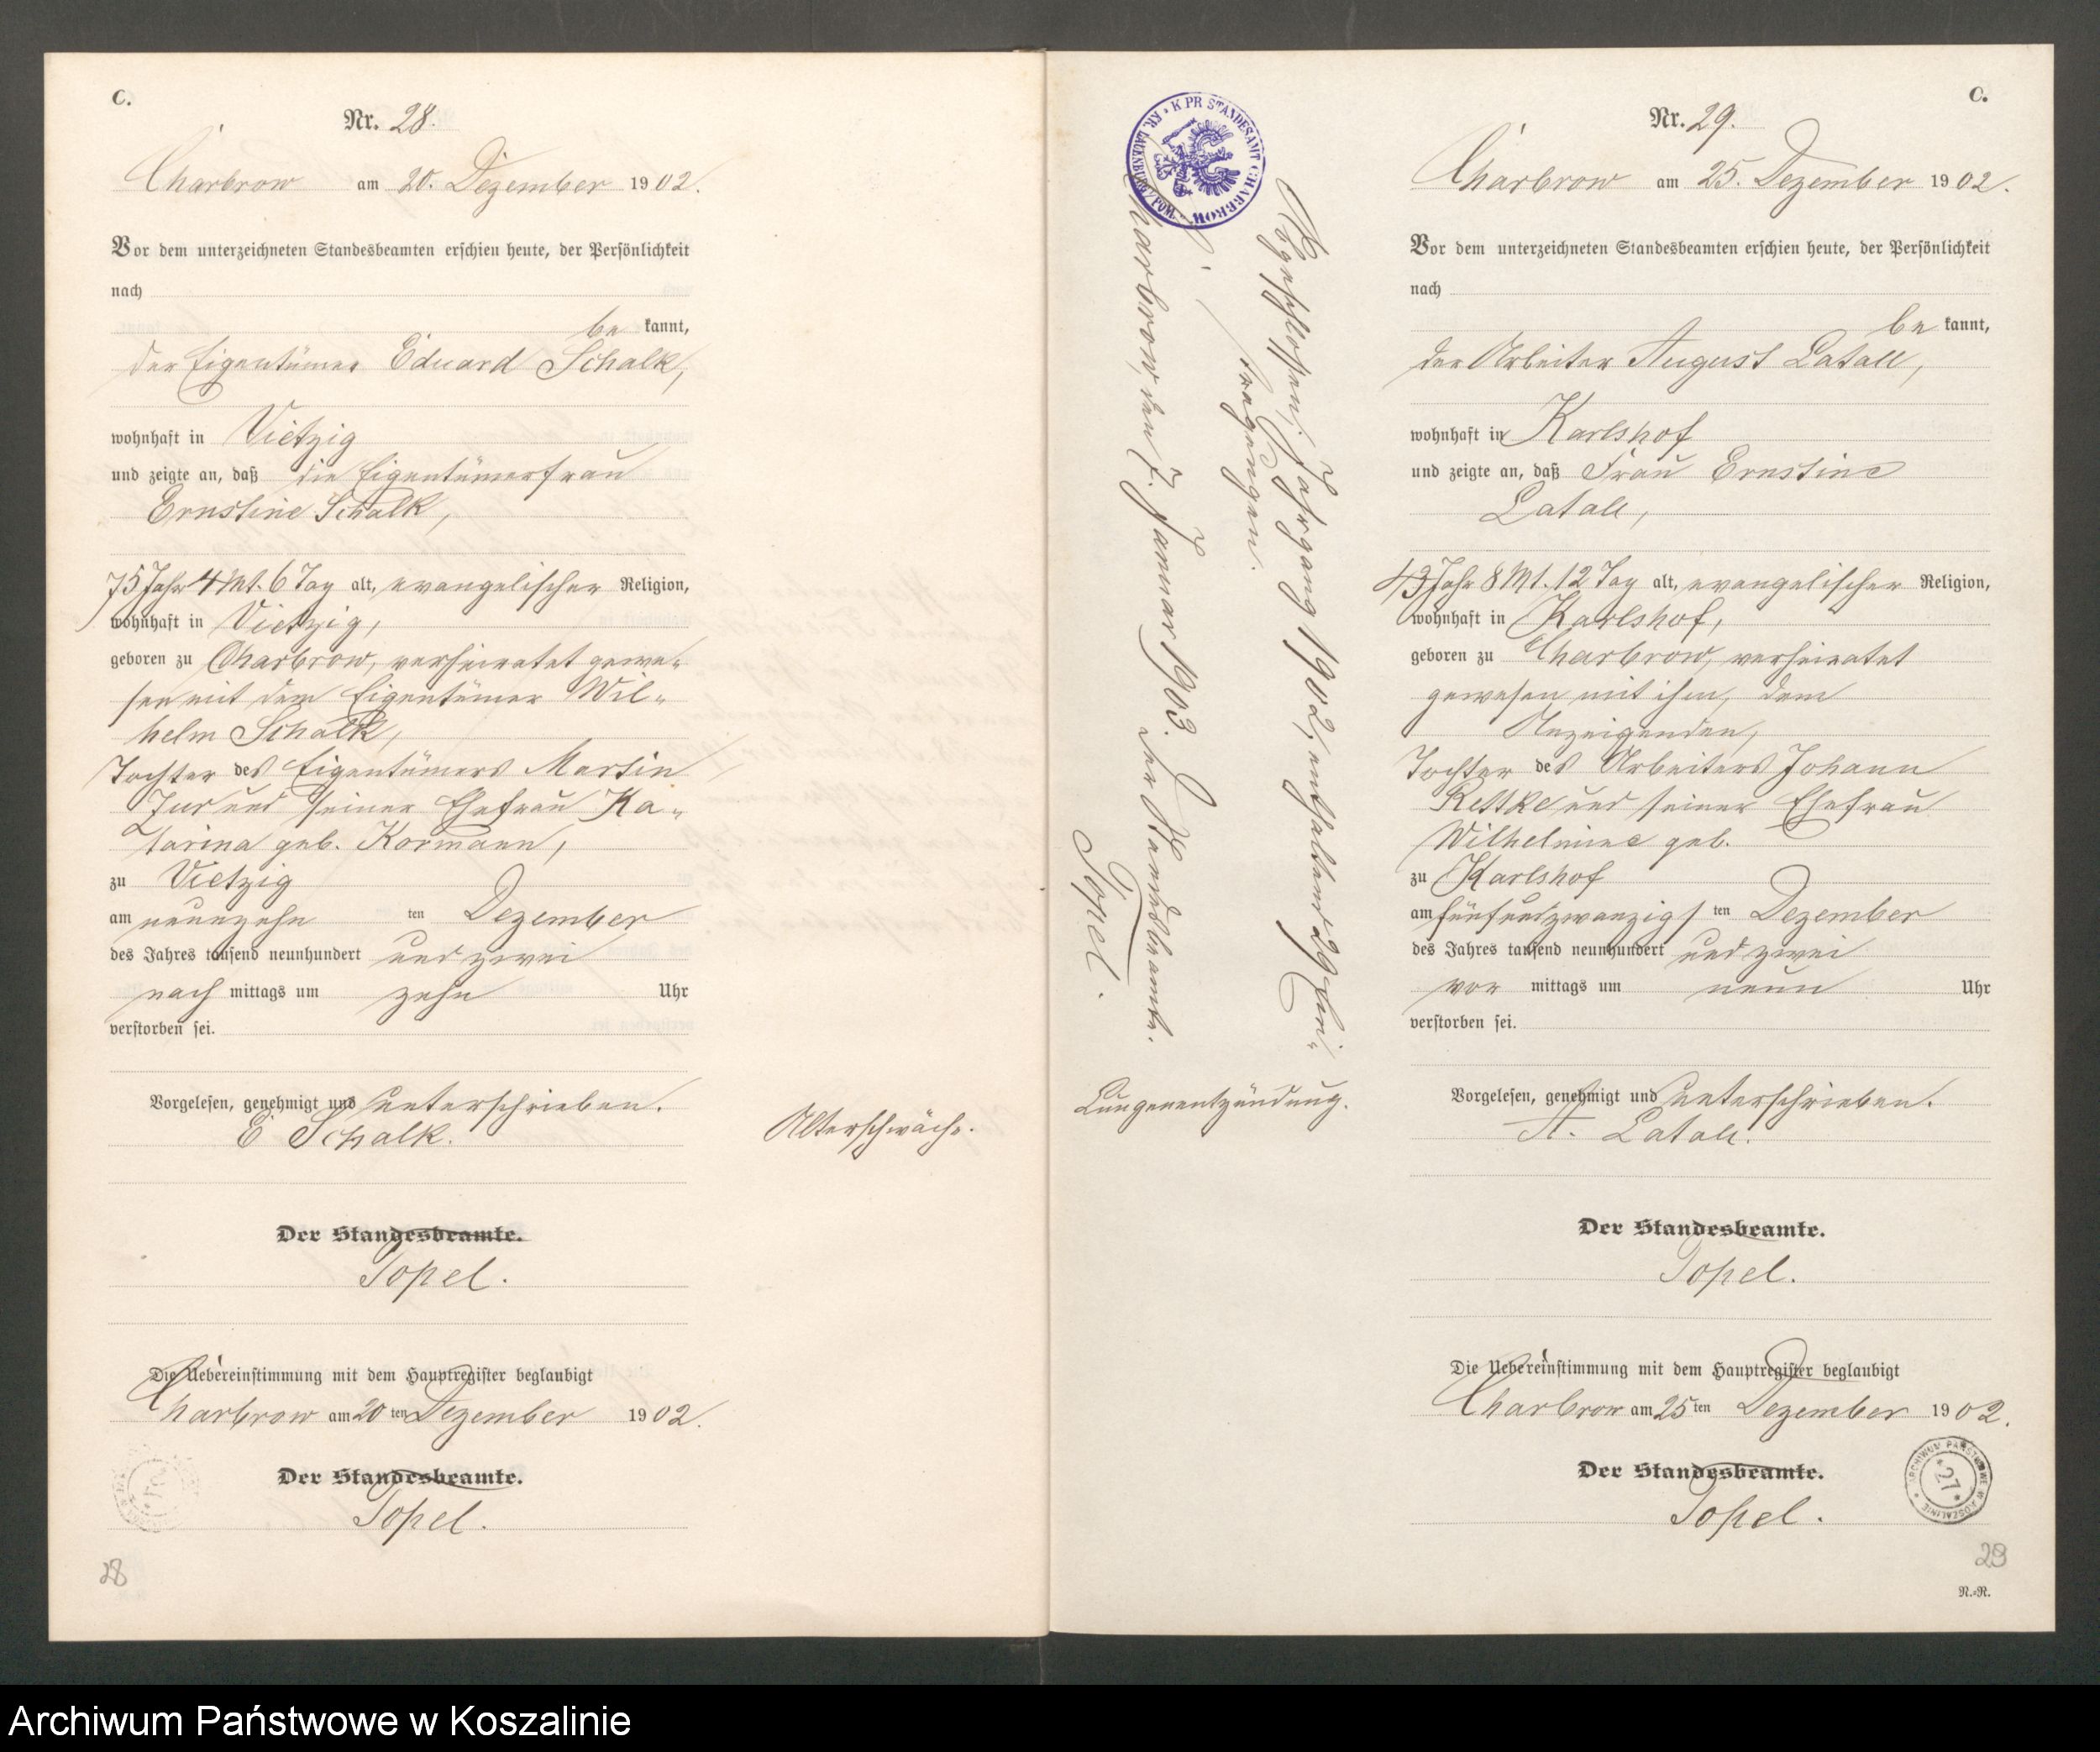 C.
Nr. 28.
Charbrow am 20. Dezember 1902.
Vor dem unterzeichneten Standesbeamten erschien heute, der Persönlichkeit
nach
be kannt,
der Eigentümer Eduard Schalk,
wohnhaft in Vietzig
und zeigte an, daß die Eigentümerfrau
Ernstine Schalk,
75 Jahr 4 Mt. 6 Tag alt, evangelischer Religion,
wohnhaft in Vietzig,
geboren zu Charbrow, verheiratet gewe-
sen mit dem Eigentümer Wil-
helm Schalk,
Tochter des Eigentümers Martin
Zur und seiner Ehefrau Ka-
tarina geb. Kormann,
zu Vietzig
am neunzehn ten Dezember
des Jahres tausend neunhundert und zwei
nach mittags um zehn Uhr
verstorben sei.
Vorgelesen, genehmigt und unterschrieben.
E Schalk.
Der Standesbeamte.
Topel.
Die Uebereinstimmung mit dem Hauptregister beglaubigt
Charbrow am 20 ten Dezember 1902.
Der Standesbeamte.
Topel.
28
Altersschwäche.
K PR STANDESAMT CHARBROW KR. LAUENBURG/POM
Abgeschlossen, Jahrgang 1902, enthaltend 29 Ein-
tragungen.
Charbrow, den 7. Januar 1903.
Der Standesbeamte.
Topel.
Lungenentzündung.
C.
Nr. 29.
Charbrow am 25. Dezember 1902.
Vor dem unterzeichneten Standesbeamten erschien heute, der Persönlichkeit
nach
be kannt,
der Arbeiter August Latall,
wohnhaft in Karlshof
und zeigte an, daß Frau Ernstine
Latall,
43 Jahr 8 Mt. 12 Tag alt, evangelischer Religion,
wohnhaft in Karlshof,
geboren zu Charbrow, verheiratet
gewesen mit ihm, dem
Anzeigenden,
Tochter des Arbeiters Johann
Rettke und seiner Ehefrau
Wilhelmine geb.
zu Karlshof
am fünfundzwanzigs ten Dezember
des Jahres tausend neunhundert und zwei
vor mittags um neun Uhr
verstorben sei.
Vorgelesen, genehmigt und unterschrieben.
A. Latall.
Der Standesbeamte.
Topel.
Die Uebereinstimmung mit dem Hauptregister beglaubigt
Charbrow am 25 ten Dezember 1902.
Der Standesbeamte.
Topel.
ARCHIWUM PAŃSTWOWE W KOSZALINIE
27
29
N.-R.
Archiwum Państwowe w Koszalinie